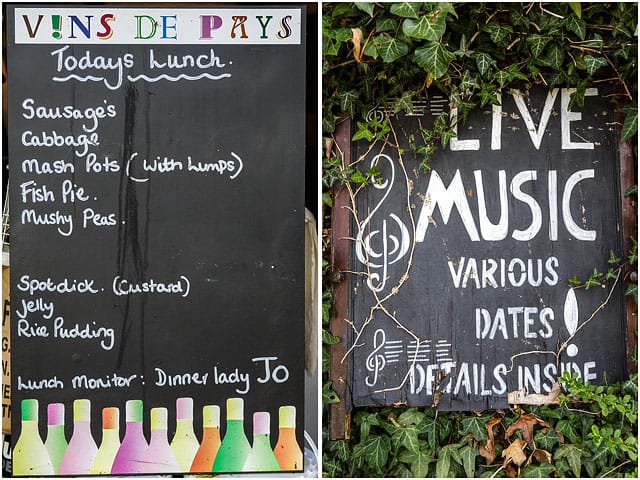 V!NS DE PAYS
Todays Lunch.
Sausage's
Cabbage
Mash Pots (with Lumps)
Fish Pie.
Mushy Peas.
Spotdick. (Custard)
Jelly
Rice Pudding
Lunch monitor: Dinner lady Jo
LIVE
MUSIC
VARIOUS
DATES!
DETAILS INSIDE